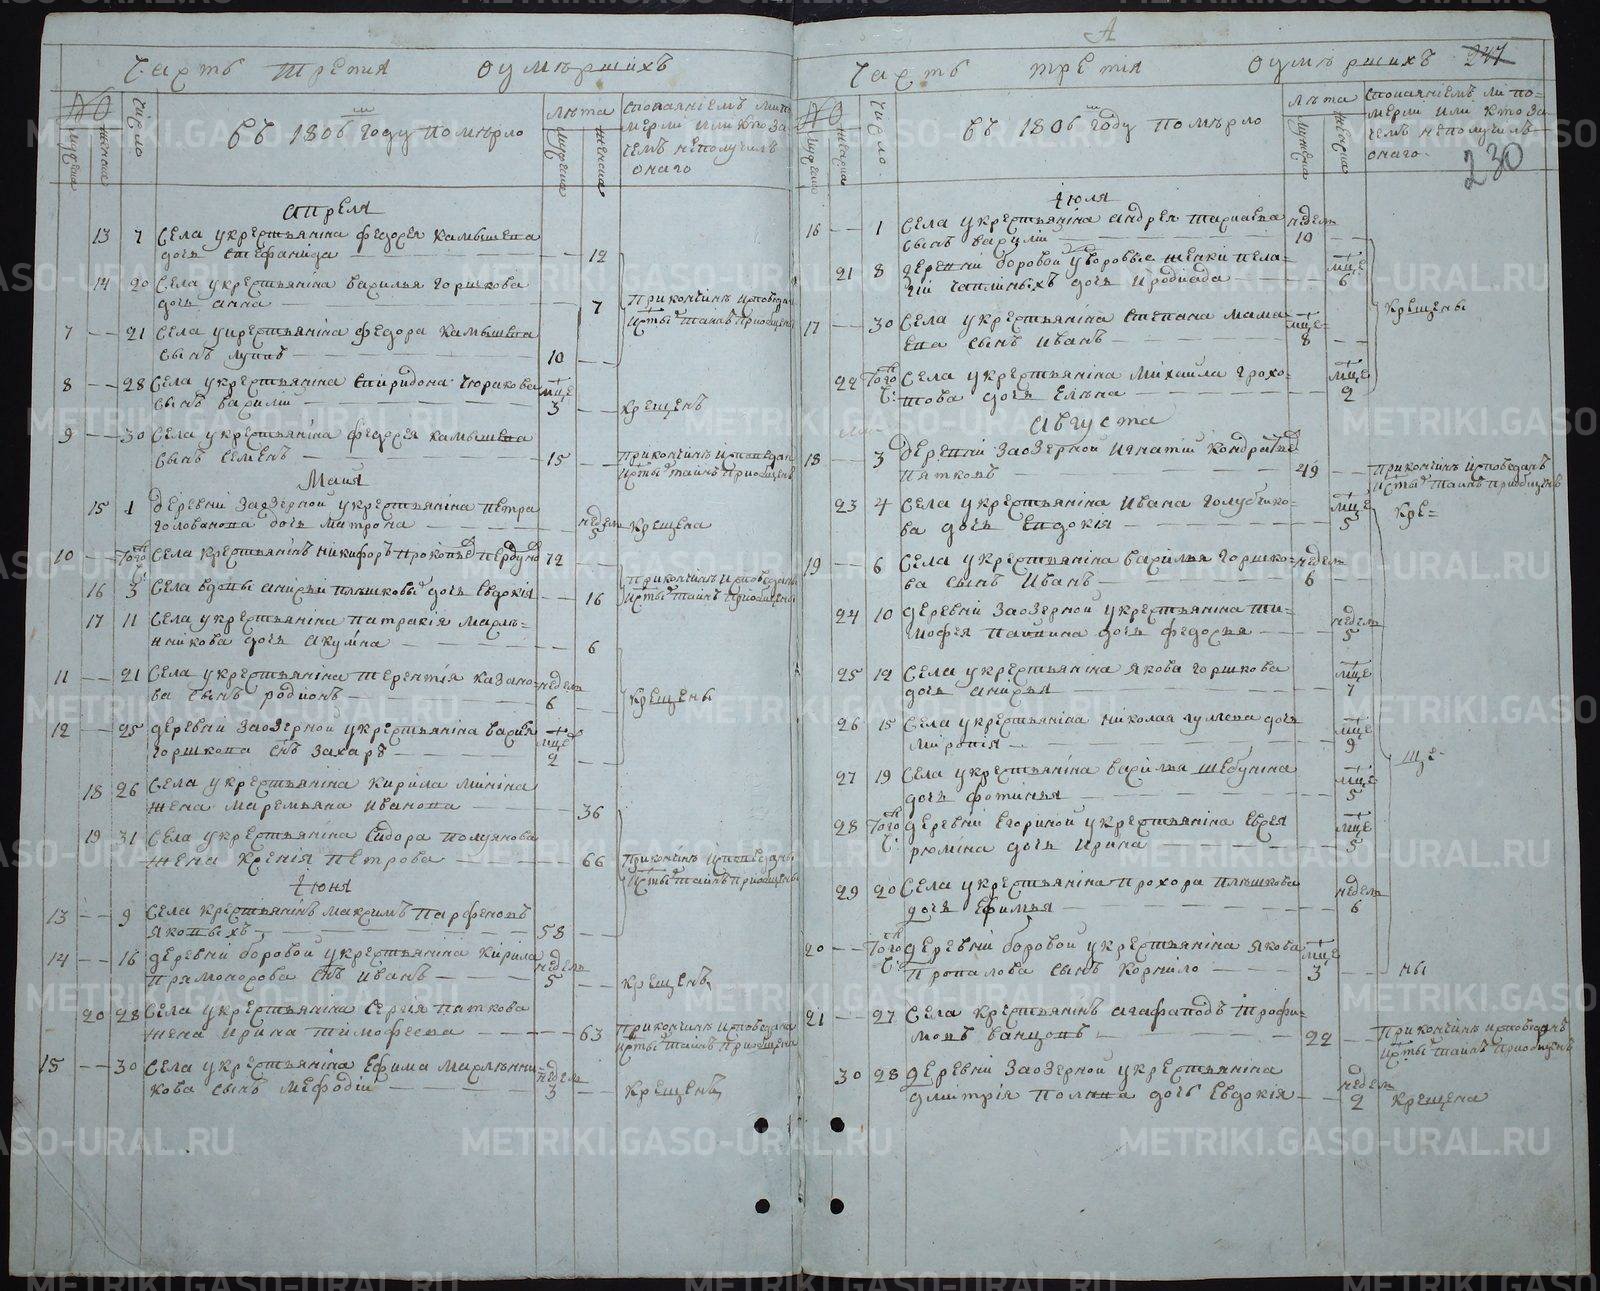 Часть третия о умѣршихъ
№ Числа Въ 1806м году помѣрло лѣта
мужеска женска
спокаяніемъ ли по
мерли или кто за
чемъ неполучилъ
онаго
Апреля
13 7 Села укрестьянина федосея камышева
дочь стефанида 12
14 20 Села укрестьянина василья горшкова
дочь анна 7 Прикончинѣ исповеданы
исты таинъ приобщены
7 21 Села укрестьянина федора камышева
сынъ луппъ 10
8 28 Села укрестьянина спиридона чюракова мце
сынъ василий 3 крещенъ
9 30 Села укрестьянина федосея камышева
сынъ семенъ 15 прикончинѣ исповедан
исты таинъ приобщенъ
Маия
15 1 деревни заозерной укрестьянина петра
голованова дочь матрона недель 5 крещена
10 того Села крестьянинъ никифоръ прокопьев 72
ч:
16 3 Села вдовы анисьи плѣшковы дочь евдокия 16 прикончинѣ исповеданы
исты таинъ приобщены
17 11 Села укрестьянина патракия маслѣ-
нникова дочь акулина 6
11 21 Села укрестьянина терентия казано- недель
ва сынъ родионъ 6 крещены
12 25 деревни заозерной укрестьянина василья мце
горшкова снъ захаръ 2
18 26 Села укрестьянина кирила минина
жена маремьяна иванова 36
19 31 Села укрестьянина сидора полуянова
жена ксения петрова 66 прикончинѣ исповеданы
исты таинъ приобщены
Июня
13 9 Села крестьянинъ максимъ парфеновъ
яковыхъ 58
14 16 деревни боровой укрестьянина кирила недель
прямоносова снъ иванъ 5 крещенъ
20 28 Села укрестьянина сергия пяткова
жена ирина тимофеева 63 прикончинѣ исповедана
исты таинъ приобщена
15 30 Села укрестьянина ефима маслѣнни- недель
кова сынъ мефодий 3 крещенъ
А
Часть третия о умѣршихъ 247
230
№ Число Въ 1806м году помѣрло лѣта
мужеска женска
спокаяніемъ ли по-
мерли или кто за
чемъ неполучилъ
онаго
Июля
16 1 Села укрестьянина андрея тарасова недель
сынъ василий 10
21 8 деревни боровой удворовые женки пела- мце
гии чаплиныхъ дочь иродиада 6
крещены
17 30 Села укрестьянина степана мама- мце
ева сынъ иванъ 8
22 того Села укрестьянина михаила грохо- мце
ч: това дочь елѣна 2
Августа
18 3 деревни заозерной игнатий кондратьев
пятковъ 49 прикончинѣ исповеданъ
исты таинъ приобщенъ
23 4 Села укрестьянина ивана голубчико- мце
ва дочь евдокия 5 кре-
19 6 Села укрестьянина василья горшко- недель
ва сынъ иванъ 6
24 10 деревни заозерной укрестьянина ти- недель
мофея панина дочь федосья 5
25 12 Села укрестьянина якова горшкова мце
дочь анисья 7
26 15 Села укрестьянина николая гулява дочь мце
миропия 9
ще-
27 19 Села укрестьянина василья шебунина мце
дочь фотинья 5
28 того деревни егориной укрестьянина евсея мце
ч: рюмина дочь ирина 5
29 20 Села укрестьянина прохора плѣшкова недель
дочь ефимья 6
20 того деревни боровой укрестьянина якова мце
ч: пропалова сынъ корнило 3 ны
21 27 Села крестьянинъ агафаподъ трофи-
мовъ ванцовъ 22 прикончинѣ исповеданъ
исты таинъ приобщенъ
30 28 деревни заозерной укрестьянина недель
дмитрия дочь евдокия 2 крещена
METRIKI.GASO-URAL.RU